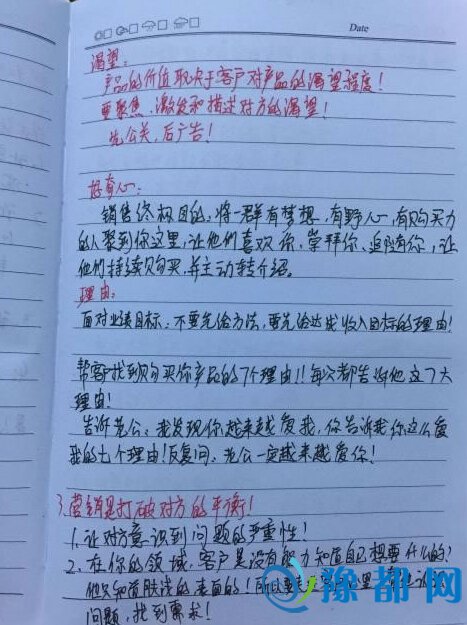 Date
渴望:
产品的价值取决于客户对产品的渴望程度!
要聚焦、激发和描述对方的渴望!
先公关,后广告!
好奇心:
销售终极目的,将一群有梦想、有野心、有购买力
的人聚到你这里,让他们喜欢你、崇拜你、追随你,让
他们持续购买,并主动转介绍。
理由:
面对业绩目标,不要先给方法,要先给达成收入目标的理由!
帮客户找到购买你产品的7个理由!!每次都告诉他这7大
理由!
告诉老公,我发现你越来越爱我,你告诉我你这么爱
我的七个理由!反复问,老公一定越来越爱你!
3.营销是打破对方的平衡!
1.让对方意识到问题的严重性!
2.在你的领域,客户是没有能力知道自己想要什么的!
他只知道肤浅的表面的!所以要
问题,找到需求!
豫都网